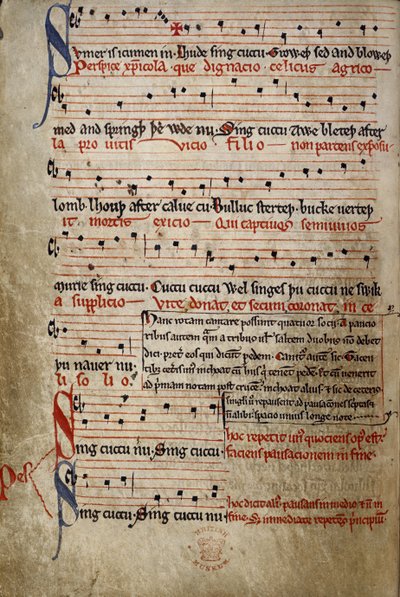 Sumer is icumen in · Lhude sing cuccu · Groweþ sed and bloweþ
Perspice xp̄icola · que dignacio · celicus agrico–
med and springþ þe wde nu · Sing cuccu Awe bleteþ after
la pro uitis vicio filio – non parcens exposu–
lomb · lhouþ after calue cu · Bulluc sterteþ · bucke uerteþ
it mortis exicio – Qui captiuos semiuiuos
Murie sing cuccu · Cuccu cuccu Wel singes þu cuccu ne swik
a supplicio – Vite donat et secum coronat in ce
þu nauer nu
li solio
Hanc rotam cantare possunt quatuor socii · A paucio
ribus autem quam a tribus uel saltem duobus non debet
dici · preter eos qui dicunt pedem · Canitur autem sic · Tacen
tibus ceteris unus inchoat cum hiis qui tenent pedem · Et cum uenerit
ad primam notam post crucem · inchoat alius · et sic de ceteris ·
singuli
Sing cuccu nu · Sing cuccu ·
hoc repetit unus quociens opus est ·
faciens pausacionem in fine ·
Pes
Sing cuccu · Sing cuccu nu
hoc dicit alius · pausans in medio et non in
fine · Set immediate repetens principium ·
BRITISH
MUSEUM